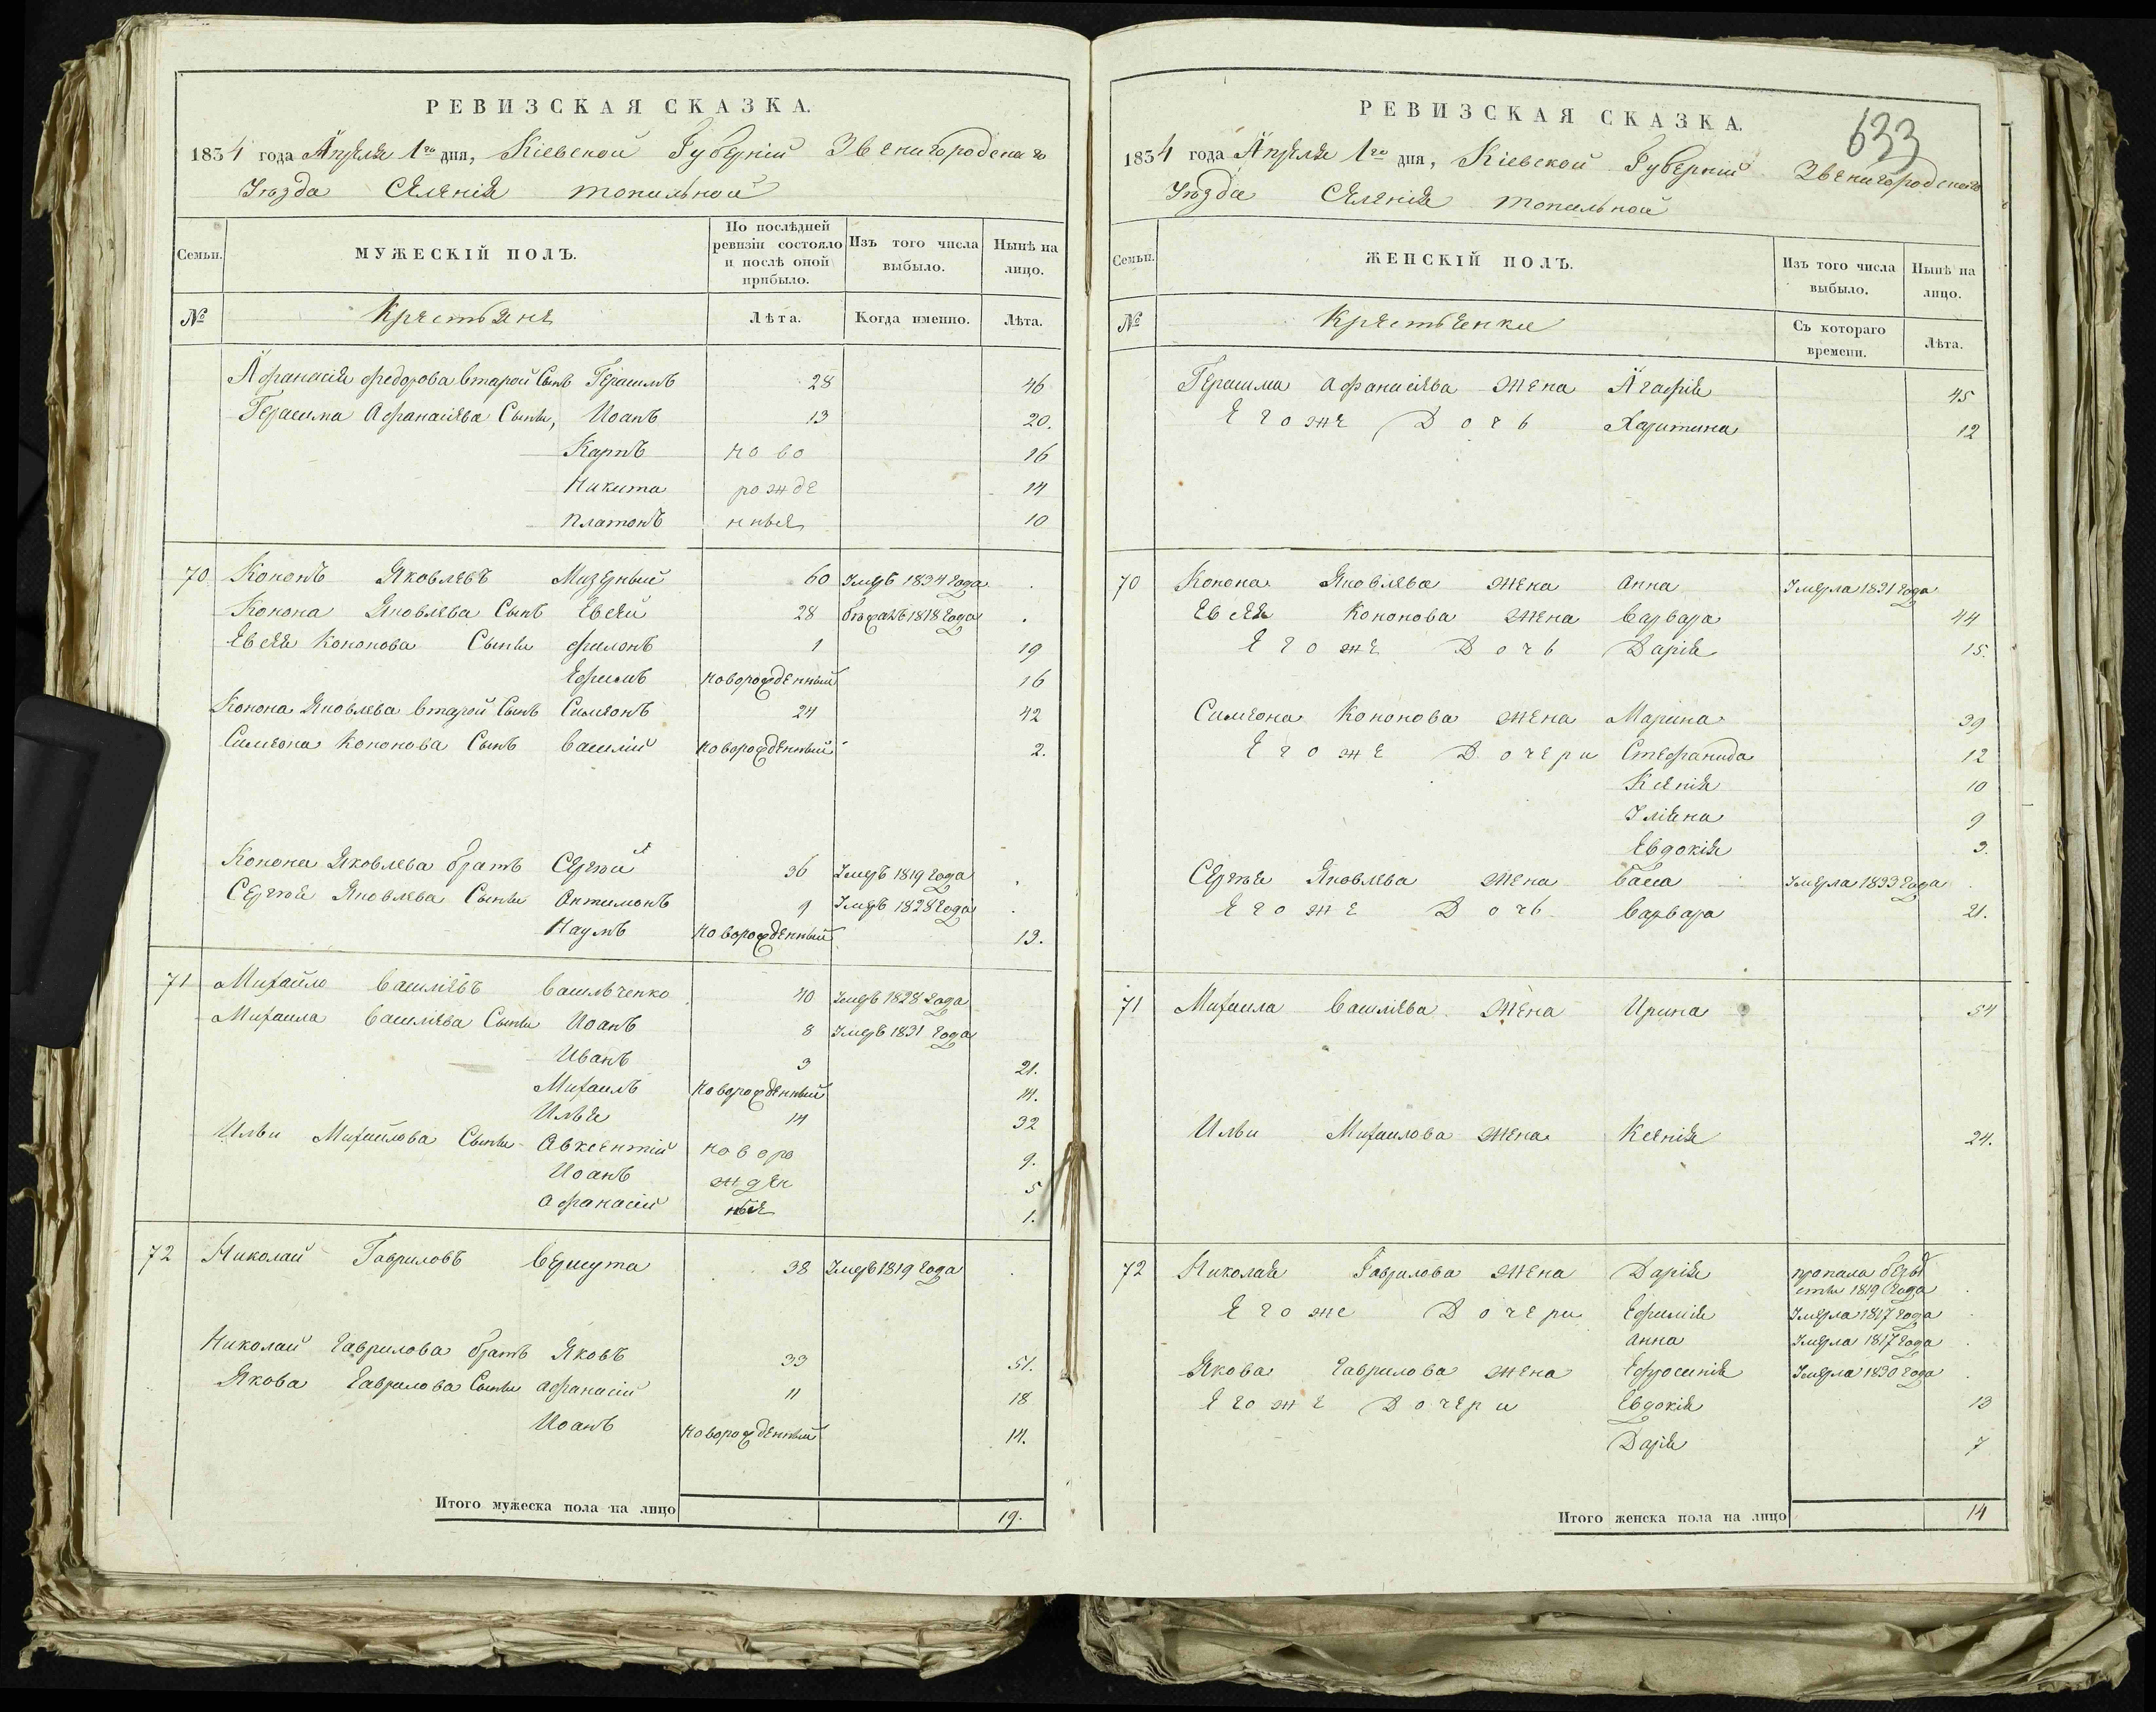 РЕВИЗСКАЯ СКАЗКА.
1834 года Апреля 1го дня, Кіевской Губерніи Звенигородскаго
Уезда Селенія Топильной
Семьи.
МУЖЕСКІЙ ПОЛЪ.
По послѣдней ревизіи состояло и послѣ оной прибыло.
Изъ того числа выбыло.
Нынѣ на лицо.
№
Крестьяне
Лѣта.
Когда именно.
Лѣта.
Афанасія Федорова второй Сынъ Герасимъ 28 46
Герасима Афанасіева Сыны, Иоанъ 13 20.
Карпъ ново 16
Никита рожде 14
Платонъ нные 10
70 Кононъ Яковлевъ Мизерный 60 Умеръ 1834 года
Конона Яковлева Сынъ Евсей 28 бежалъ 1818 года
Евсея Кононова Сыны Филонъ 1 19
Ефимъ новорожденный 16
Конона Яковлева второй Сынъ Симеонъ 24 42
Симеона Кононова Сынъ Василій новорожденный 2.
Конона Яковлева братъ Сергей 36 Умеръ 1819 года
Сергея Яковлева Сыны Антимонъ 9 Умеръ 1828 года
Наумъ новорожденный 13.
71 Михайло Василіевъ Васильченко 40 Умеръ 1828 года
Михаила Василіева Сыны Иоанъ 8 Умеръ 1831 года
Иванъ 3 21.
Михаилъ новорожденный 14.
Илья 14 32
Ильи Михайлова Сыны Авксентій новоро 9.
Иоанъ жден 5
Афанасій ные 1.
72 Николай Гавриловъ Вершута 38 Умеръ 1819 года
Николай Гаврилова братъ Яковъ 33 51.
Якова Гаврилова Сыны Афанасій 11 18
Иоанъ новорожденный 14.
Итого мужеска пола на лицо 19.
633
РЕВИЗСКАЯ СКАЗКА.
1834 года Апреля 1го дня, Кіевской Губерніи Звенигородскаго
Уезда Селенія Топильной
Семьи.
ЖЕНСКІЙ ПОЛЪ.
Изъ того числа выбыло.
Нынѣ на лицо.
№
Крестьянки
Съ котораго времени.
Лѣта.
Герасима Афанасіева жена Агафія 45
Егоже Дочь Харитина 12
70 Конона Яковлева жена Анна Умерла 1831 года
Евсея Кононова жена Варвара 44
Егоже Дочь Дарія 15.
Симеона Кононова жена Марина 39
Егоже Дочери Стефанида 12
Ксенія 10
Уліяна 9
Евдокія 3.
Сергея Яковлева жена Васа Умерла 1833 года
Егоже Дочь Варвара 21.
71 Михаила Василіева жена Ирина 54
Ильи Михаилова жена Ксенія 24.
72 Николая Гаврилова жена Дарія пропала безве
сти 1819 года
Егоже Дочери Ефимія Умерла 1817 года
Анна Умерла 1817 года
Якова Гаврилова жена Ефросинія Умерла 1830 года
Егоже Дочери Евдокія 13
Дарія 7
Итого женска пола на лицо 14